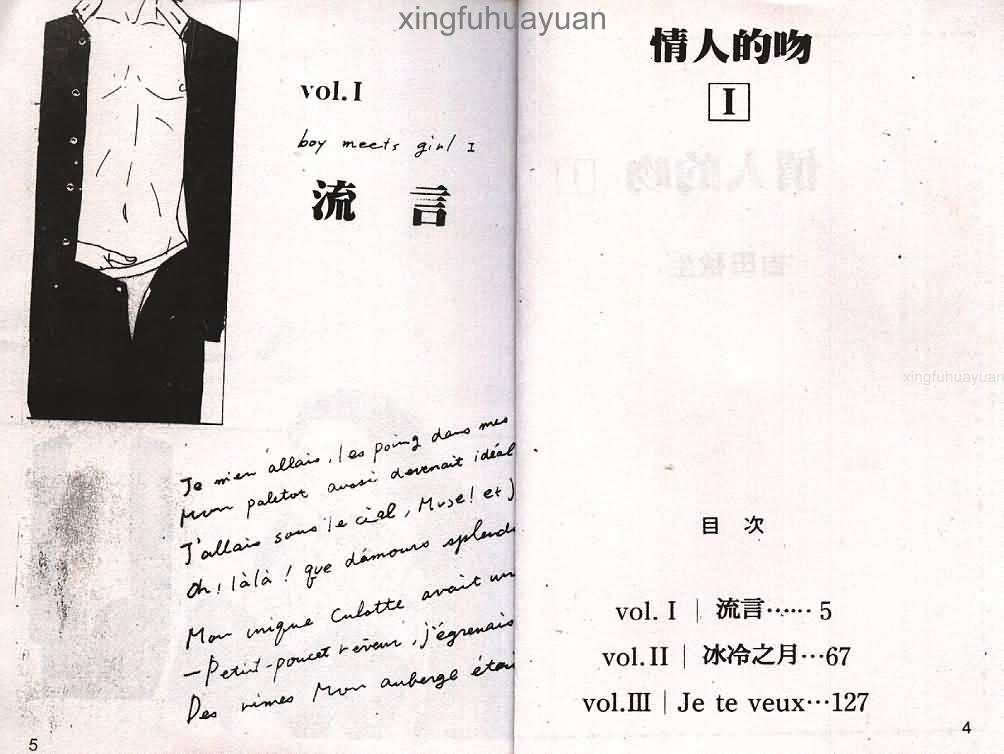 xingfuhuayuan
情人的吻
I
xingfuhuayuan
目 次
vol. I | 流言…… 5
vol. II | 冰冷之月…67
vol. III | Je te veux…127
4
vol. I
boy meets girl I
流 言
Je m'en allais, les poing dans mes
Mon paletot aussi devenait idéal
J'allais sous le ciel, Muse! et j
Oh! làlà! que dámours splend
Mon unique Culotte avait un
—Petit-poucet rêveur, j'égrenais
Des rimes Mon auberge étai
5